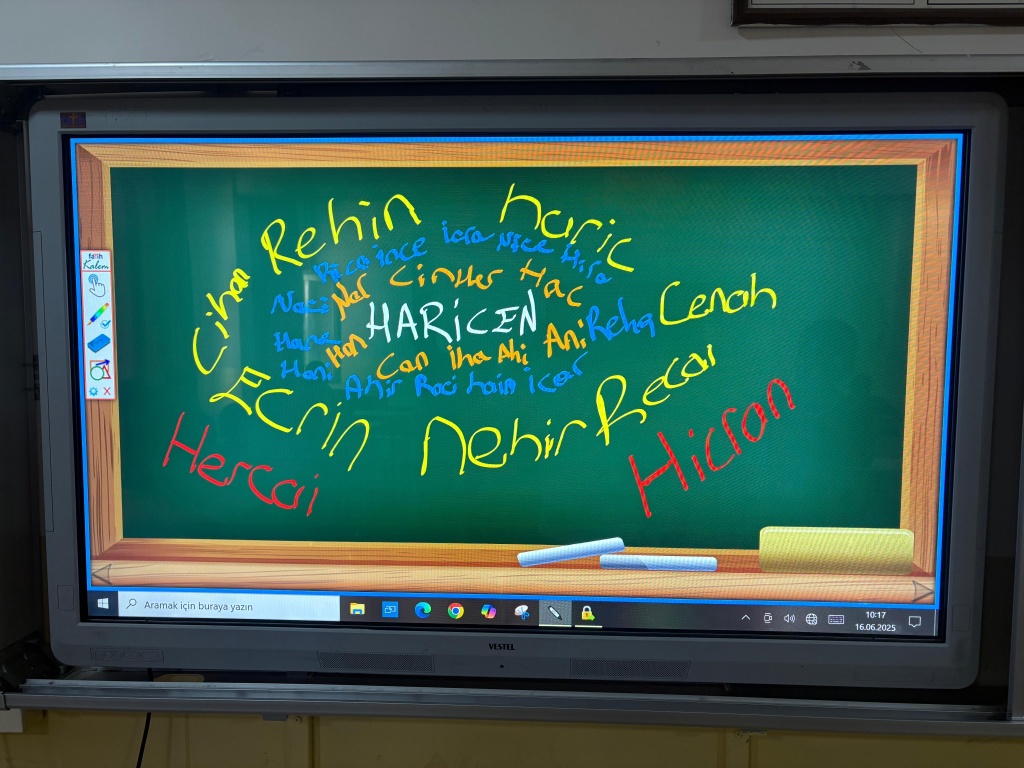 Rehin haric
Rica ince icra Nice Hira
Cihan Naci Nar Cinler Hac
HARiCEN Reha Cenah
Hana Han Can iha Ahi Ani
Hani Ahir Raci hain icar
Ecrin Nehir Recai
Hercai Hicran
fatih
Kalem
Aramak için buraya yazın
10:17
16.06.2025
VESTEL